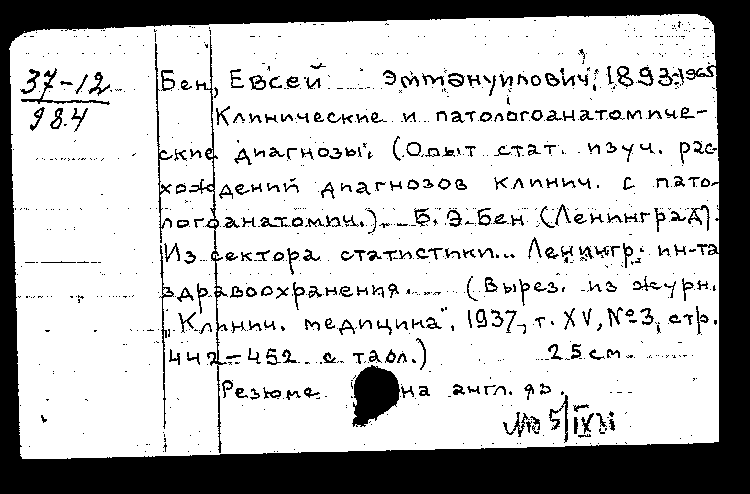 37-12
984
Бен, Евсей Эммануилович, 1893-1965
Клинические и патологоанатомиче-
ские диагнозы. (Опыт стат. изуч. рас
хождений диагнозов клинич. с пато-
логоанатомич.). Б. Э. Бен (Ленинград).
Из сектора статистики... Ленингр. ин-та
здравоохранения. (Вырез. из журн.
"Клинич. медицина", 1937, т. XV, №3, стр.
442-452 с табл.) 25 см.
Резюме на англ. яз.
5/IX